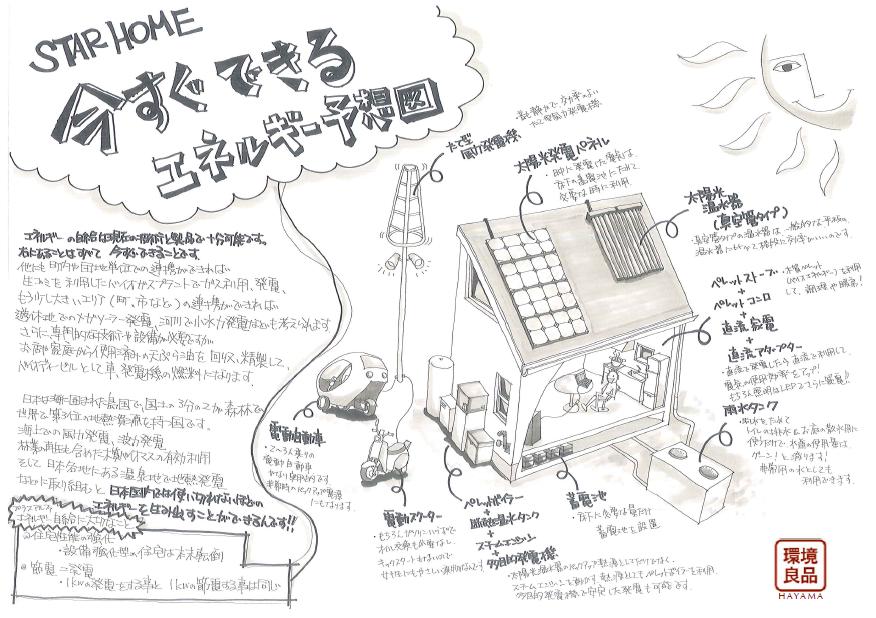 STAR HOME
今すぐできる
エネルギー予想図
エネルギーの自給は現在の技術と製品で十分可能です。
右にあることはすべて 今すぐできることです
他にも町内や団地単位での連携ができれば
生ゴミを利用したバイオガスプラントでガス利用、発電、
もう少し大きいエリア(町、市など)の連携ができれば
遊休地でのメガソーラー発電、河川で小水力発電なども考えられます
さらに、専門的な技術や設備が必要ですが
お店や家庭から使用済みの天ぷら油を回収、精製して、
バイオディーゼルとして車、発電機の燃料になります。
日本は海に囲まれた島国で、国土の3分の2が森林で
世界で第3位の地熱資源を持つ国です。
海上での風力発電、波力発電
林業の再生も含めた木質バイオマスの有効利用
そして日本各地にある温泉地で地熱発電
などに取り組むと 日本国内では使い切れないほどの
エネルギーを生み出すことができるんです!!
エネルギー自給に大切なこと
住宅性能の強化
・設備強化型の住宅は本末転倒
節電=発電
・1kWの発電をする事と 1kWの節電する事は同じ
たて型
風力発電機
・最も静かで効率のよい
たて型風力発電機。
太陽光発電パネル
・日中に発電した電気は、
床下の蓄電池にためて、
必要な時に利用。
太陽光
温水器
(真空管タイプ)
・真空管タイプの温水器は、一般的な平板の
温水器に比べて格段に効率がいいのです。
ペレットストーブ
+
ペレットコンロ
+
直流家電
+
直流アダプター
・木質ペレット
を利用
して、調理や暖房!
・直流で発電したら直流で利用して、
電気の使用効率をアップ!
もちろん照明はLEDでさらに節電!!
雨水タンク
・雨水をためて
トイレの排水&お庭の散水用に
使うだけで、水道の使用量は、
グーン!と減ります!
非常用の水としても
利用できます。
電動自動車
・2〜3人乗りの
電動自動車
非常時のバックアップ電源
にもなります。
電動スクーター
・もちろんガソリンいらずで
オイル交換も必要なし
キックスタートもないので
女性にもやさしい乗り物なんです。
ペレットボイラー
+
貯湯温水タンク
+
スチームエンジン
+
多目的発電機
・太陽光温水器のバックアップ熱源としてだけでなく、
スチームエンジンを動かす熱源としてもペレットボイラーを利用。
多目的発電機で安定した発電も可能です。
蓄電池
・床下に必要な量だけ
蓄電池を設置
環境
良品
HAYAMA